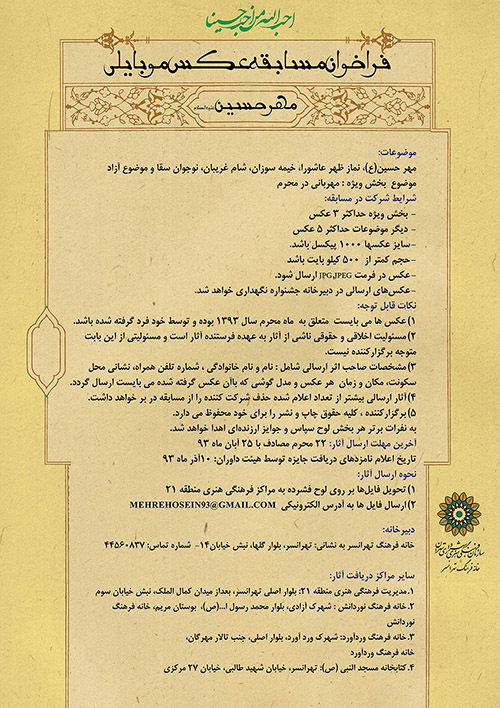 احب الله من احب حسینا
فراخوان مسابقه عکس موبایلی
مهر حسین علیه‌السلام
موضوعات:
مهر حسین(ع)، نماز ظهر عاشورا، خیمه سوزان، شام غریبان، نوجوان سقا و موضوع آزاد
موضوع بخش ویژه : مهربانی در محرم
شرایط شرکت در مسابقه:
- بخش ویژه حداکثر ۳ عکس
- دیگر موضوعات حداکثر ۵ عکس
-سایز عکسها ۱۰۰۰ پیکسل باشد.
-حجم کمتر از ۵۰۰ کیلو بایت باشد
-عکس در فرمت JPG,JPEG ارسال شود.
-عکس‌های ارسالی در دبیرخانه جشنواره نگهداری خواهد شد.
نکات قابل توجه:
۱)عکس ها می بایست متعلق به ماه محرم سال ۱۳۹۳ بوده و توسط خود فرد گرفته شده باشد.
۲)مسئولیت اخلاقی و حقوقی ناشی از آثار به عهده فرستنده آثار است و مسئولیتی از این بابت
متوجه برگزارکننده نیست.
۳)مشخصات صاحب اثر ارسالی شامل : نام و نام خانوادگی ، شماره تلفن همراه، نشانی محل
سکونت، مکان و زمان هر عکس و مدل گوشی که باآن عکس گرفته شده می بایست ارسال گردد.
۴)آثار ارسالی بیشتر از تعداد اعلام شده حذف شرکت کننده را از مسابقه در بر خواهد داشت.
۵)برگزارکننده ، کلیه حقوق چاپ و نشر را برای خود محفوظ می دارد.
به نفرات برتر هر بخش لوح سپاس و جوایز ارزنده‌ای اهدا خواهد شد.
آخرین مهلت ارسال آثار: ۲۲ محرم مصادف با ۲۵ آبان ماه ۹۳
تاریخ اعلام نامزدهای دریافت جایزه توسط هیئت داوران: ۱۰آذر ماه ۹۳
نحوه ارسال آثار:
۱)تحویل فایل‌ها بر روی لوح فشرده به مراکز فرهنگی هنری منطقه ۲۱
۲)ارسال فایل ها به آدرس الکترونیکی MEHREHOSEIN93@GMAIL.COM
دبیرخانه:
خانه فرهنگ تهرانسر به نشانی: تهرانسر، بلوار گلها، نبش خیابان۱۴- شماره تماس: ۴۴۵۶۰۸۳۷
سایر مراکز دریافت آثار:
۱.مدیریت فرهنگی هنری منطقه ۲۱: بلوار اصلی تهرانسر، بعداز میدان کمال الملک، نبش خیابان سوم
۲.خانه فرهنگ نوردانش : شهرک آزادی، بلوار محمد رسول ا...(ص)، بوستان مریم، خانه فرهنگ
نوردانش
۳.خانه فرهنگ وردآورد: شهرک ورد آورد، بلوار اصلی، جنب تالار مهرگان،
خانه فرهنگ وردآورد
۴.کتابخانه مسجد النبی (ص): تهرانسر، خیابان شهید طالبی، خیابان ۲۷ مرکزی
سازمان فرهنگی هنری شهرداری تهران
خانه فرهنگ تهرانسر